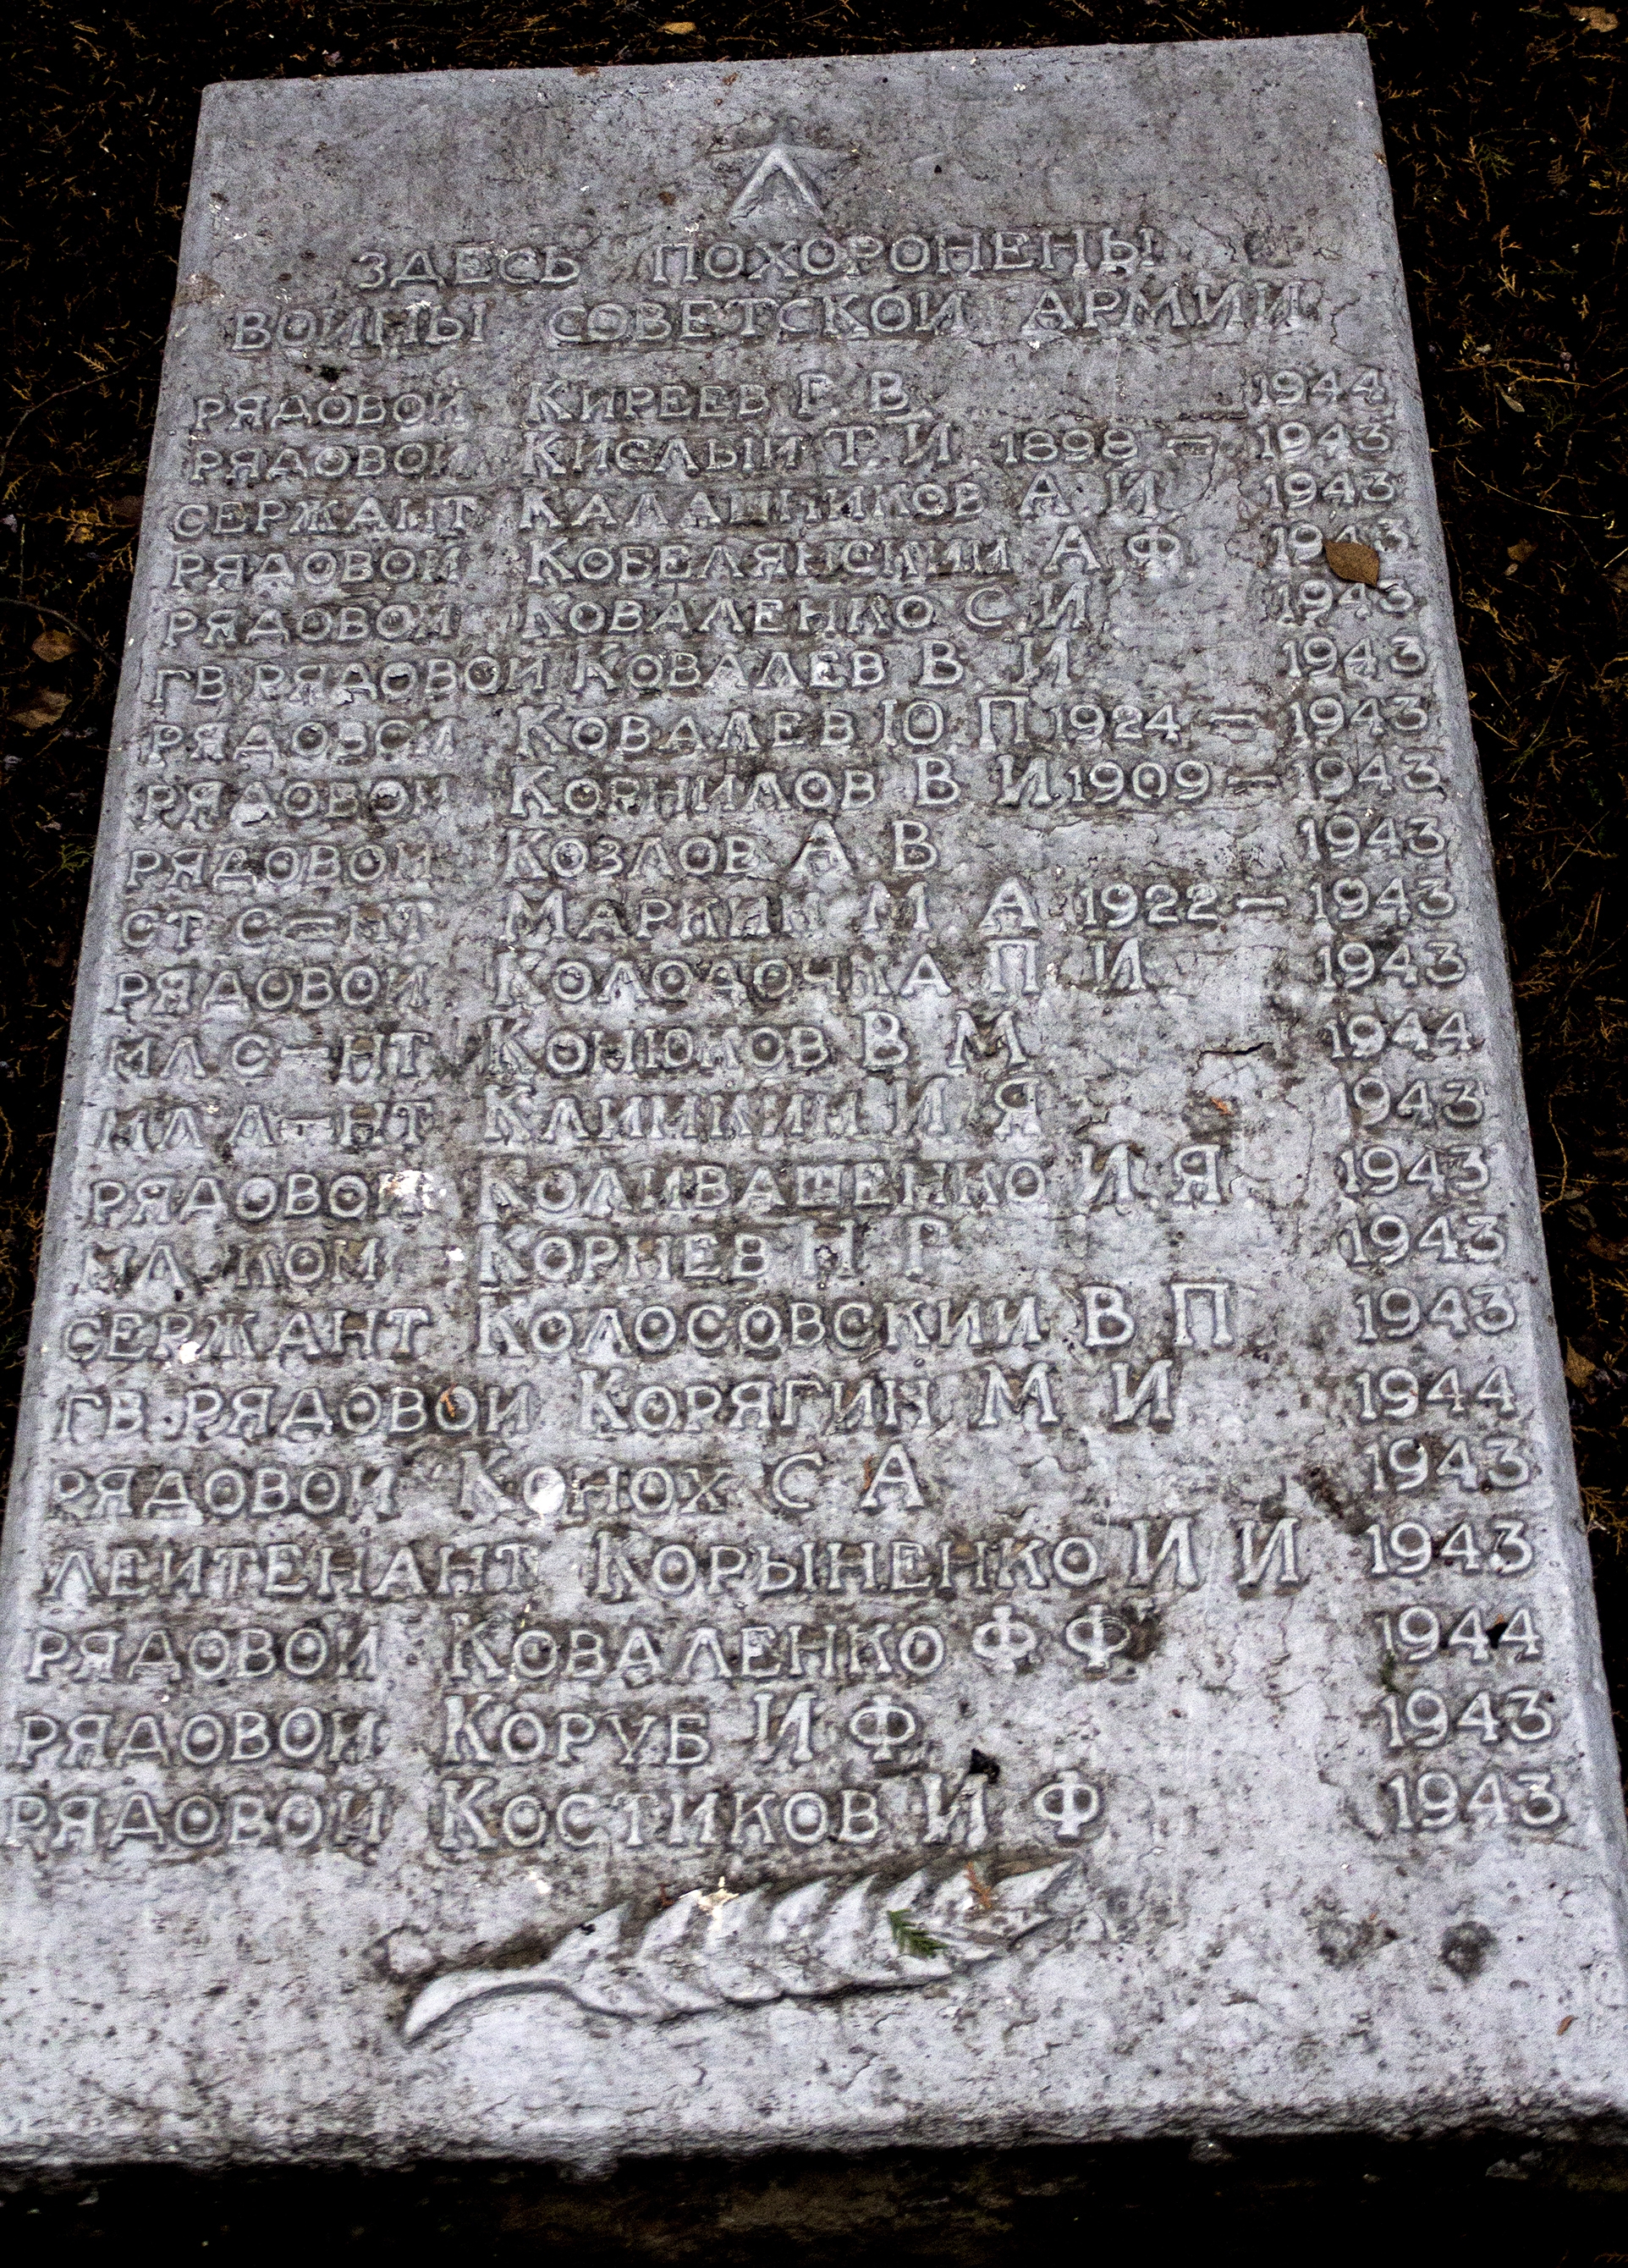 ЗДЕСЬ ПОХОРОНЕНЫ
ВОИНЫ СОВЕТСКОЙ АРМИИ
РЯДОВОЙ КИРЕЕВ Г. В. 1944
РЯДОВОЙ КИСЛЫЙ Т. И 1898 — 1943
СЕРЖАНТ КАЛАШНИКОВ А. И 1943
РЯДОВОЙ КОБЕЛЯНСКИЙ А Ф 1943
РЯДОВОЙ КОВАЛЕНКО С. И 1943
ГВ. РЯДОВОЙ КОВАЛЕВ В. И 1943
РЯДОВОЙ КОВАЛЕВ Ю. П 1924 — 1943
РЯДОВОЙ КОРНИЛОВ В И. 1909 — 1943
РЯДОВОЙ КОЗЛОВ А. В 1943
СТ С—НТ МАРКИН М А 1922 — 1943
РЯДОВОЙ П И 1943
МЛ С—НТ В М 1944
МЛ Л—НТ И Я 1943
РЯДОВОЙ КОЛИВАШЕНКО И. Я 1943
МЛ. КОМ КОРНЕВ Н Г 1943
СЕРЖАНТ КОЛОСОВСКИЙ В П 1943
ГВ. РЯДОВОЙ КОРЯГИН М И 1944
РЯДОВОЙ КОНОХ С А 1943
ЛЕЙТЕНАНТ КОРЫНЕНКО И И 1943
РЯДОВОЙ КОВАЛЕНКО Ф Ф 1944
РЯДОВОЙ КОРУБ И Ф 1943
РЯДОВОЙ КОСТИКОВ И Ф 1943